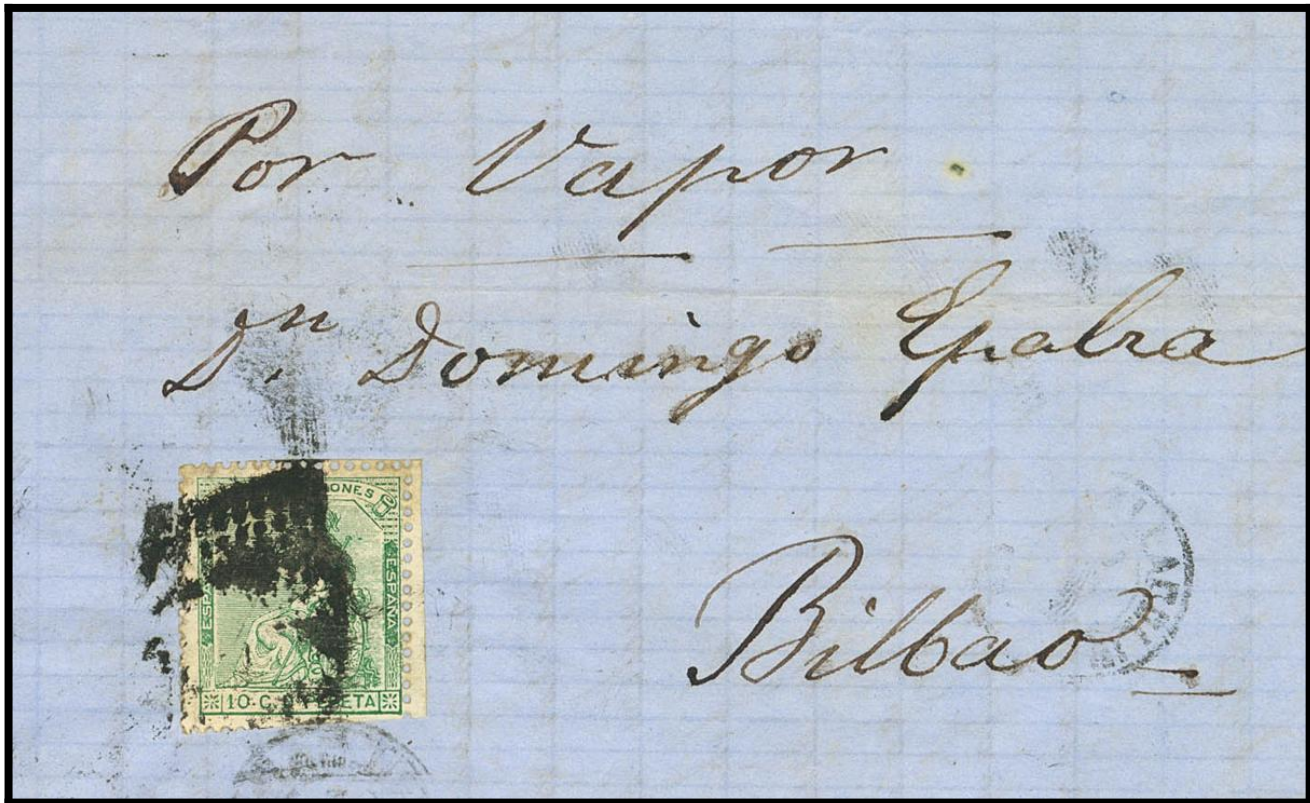 Por Vapor
Dn. Domingo Epalza
Bilbao
ONES
ESPAÑA
ESPAÑA
10 C
ETA